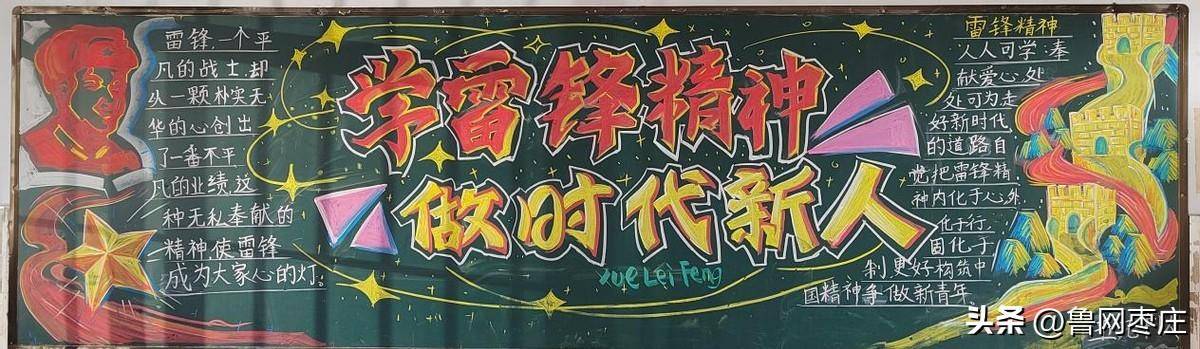 雷锋,一个平
凡的战士,却
从一颗朴实无
华的心创出
了一番不平
凡的业绩,这
种无私奉献的
精神使雷锋
成为大家心的灯。
学雷锋精神
做时代新人
xue Lei Feng
雷锋精神
人人可学:奉
献爱心,处
处可为走
好新时代
的道路自
觉把雷锋精
神内化于心外
化于行
固化于
制更好构筑中
国精神争做新青年
头条 @鲁网枣庄